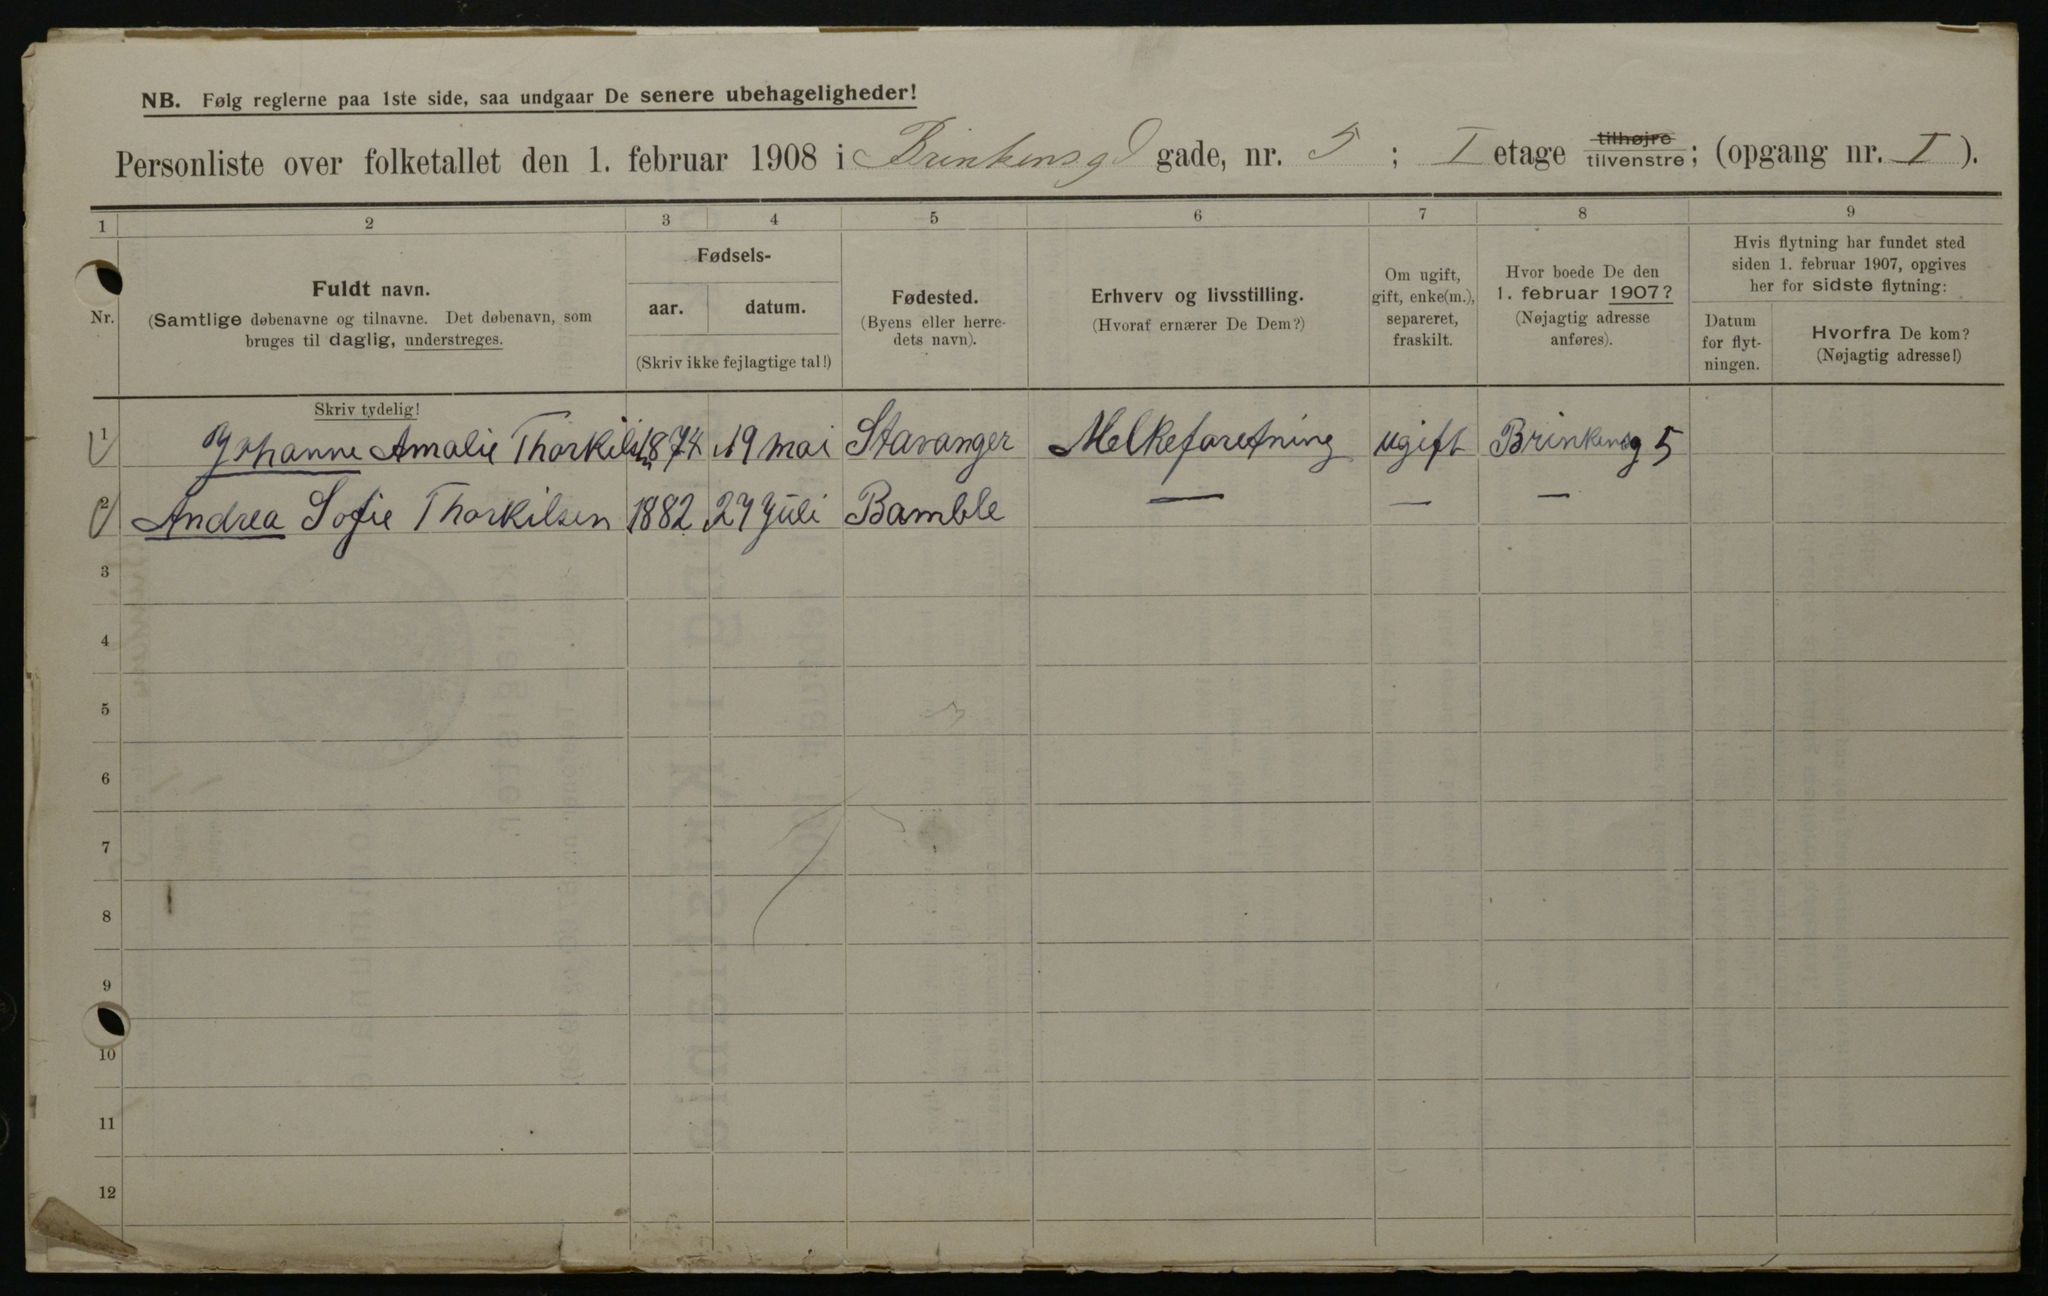 NB. Følg reglerne paa 1ste side, saa undgaar De senere ubehageligheder!
Personliste over folketallet den 1. februar 1908 i Brinkensgd gade, nr. 5 ; I etage tilhøjre tilvenstre; (opgang nr. I ).
1 2 3 4 5 6 7 8 9
Nr.
Fuldt navn.
(Samtlige døbenavne og tilnavne. Det døbenavn, som
bruges til daglig, understreges.
Skriv tydelig!
Fødsels-
aar. datum.
(Skriv ikke fejlagtige tal!)
Fødested.
(Byens eller herre-
dets navn).
Erhverv og livsstilling.
(Hvoraf ernærer De Dem?)
Om ugift,
gift, enke(m.),
separeret,
fraskilt.
Hvor boede De den
1. februar 1907?
(Nøjagtig adresse
anføres).
Hvis flytning har fundet sted
siden 1. februar 1907, opgives
her for sidste flytning:
Datum
for flyt-
ningen.
Hvorfra De kom?
(Nøjagtig adresse!)
1 Johanne Amalie Thorkilsen 1874 19 mai Stavanger Melkeforetning ugift Brinkensg 5
2 Andrea Sofie Thorkilsen 1882 27 Juli Bamble — — —
3
4
5
6
7
8
9
10
11
12